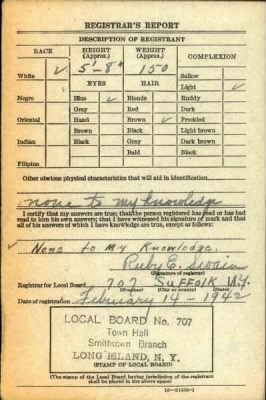 REGISTRAR'S REPORT
DESCRIPTION OF REGISTRANT
RACE HEIGHT (Approx.) WEIGHT (Approx.) COMPLEXION
White ✓ 5'-8" 150 Sallow
EYES HAIR Light ✓
Negro Blue ✓ Blonde Ruddy
Gray Red Dark
Oriental Hazel Brown ✓ Freckled
Brown Black Light brown
Indian Black Gray Dark brown
Bald Black
Filipino
Other obvious physical characteristics that will aid in identification
none to my knowledge
I certify that my answers are true; that the person registered has read or has had read to him his own answers; that I have witnessed his signature or mark and that all of his answers of which I have knowledge are true, except as follows:
None to My Knowledge.
Ruby E.
(Signature of registrar)
Registrar for Local Board 707 SUFFOLK N.Y.
(Number) (City or county) (State)
Date of registration February 14 - 1942
LOCAL BOARD No. 707
Town Hall
Smithtown Branch
LONG ISLAND, N. Y.
(STAMP OF LOCAL BOARD)
(The stamp of the Local Board having jurisdiction of the registrant shall be placed in the above space)